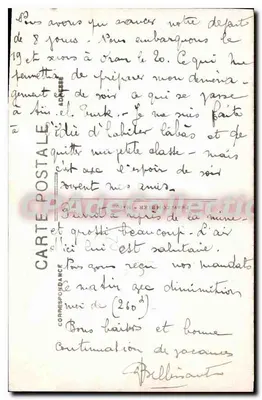 Nous avons pu avancer notre départ
de 8 jours. Nous embarquons le
19 et serons à Oran le 20. Ce qui me
permettra de préparer mon déména-
gement et de voir ce qui se passe
à Aïn el Turk. Je me suis faite
l'idée d'habiter là bas et de
quitter ma petite classe - mais
c'est avec l'espoir de voir
souvent mes amis.
a repris de la mine
et grossi beaucoup. L'air
ici lui est salutaire.
nos mandats
ce matin avec diminution
moi de (260
Bons baisers et bonne
continuation de vacances
CARTE POSTALE
CORRESPONDANCE
ADRESSE